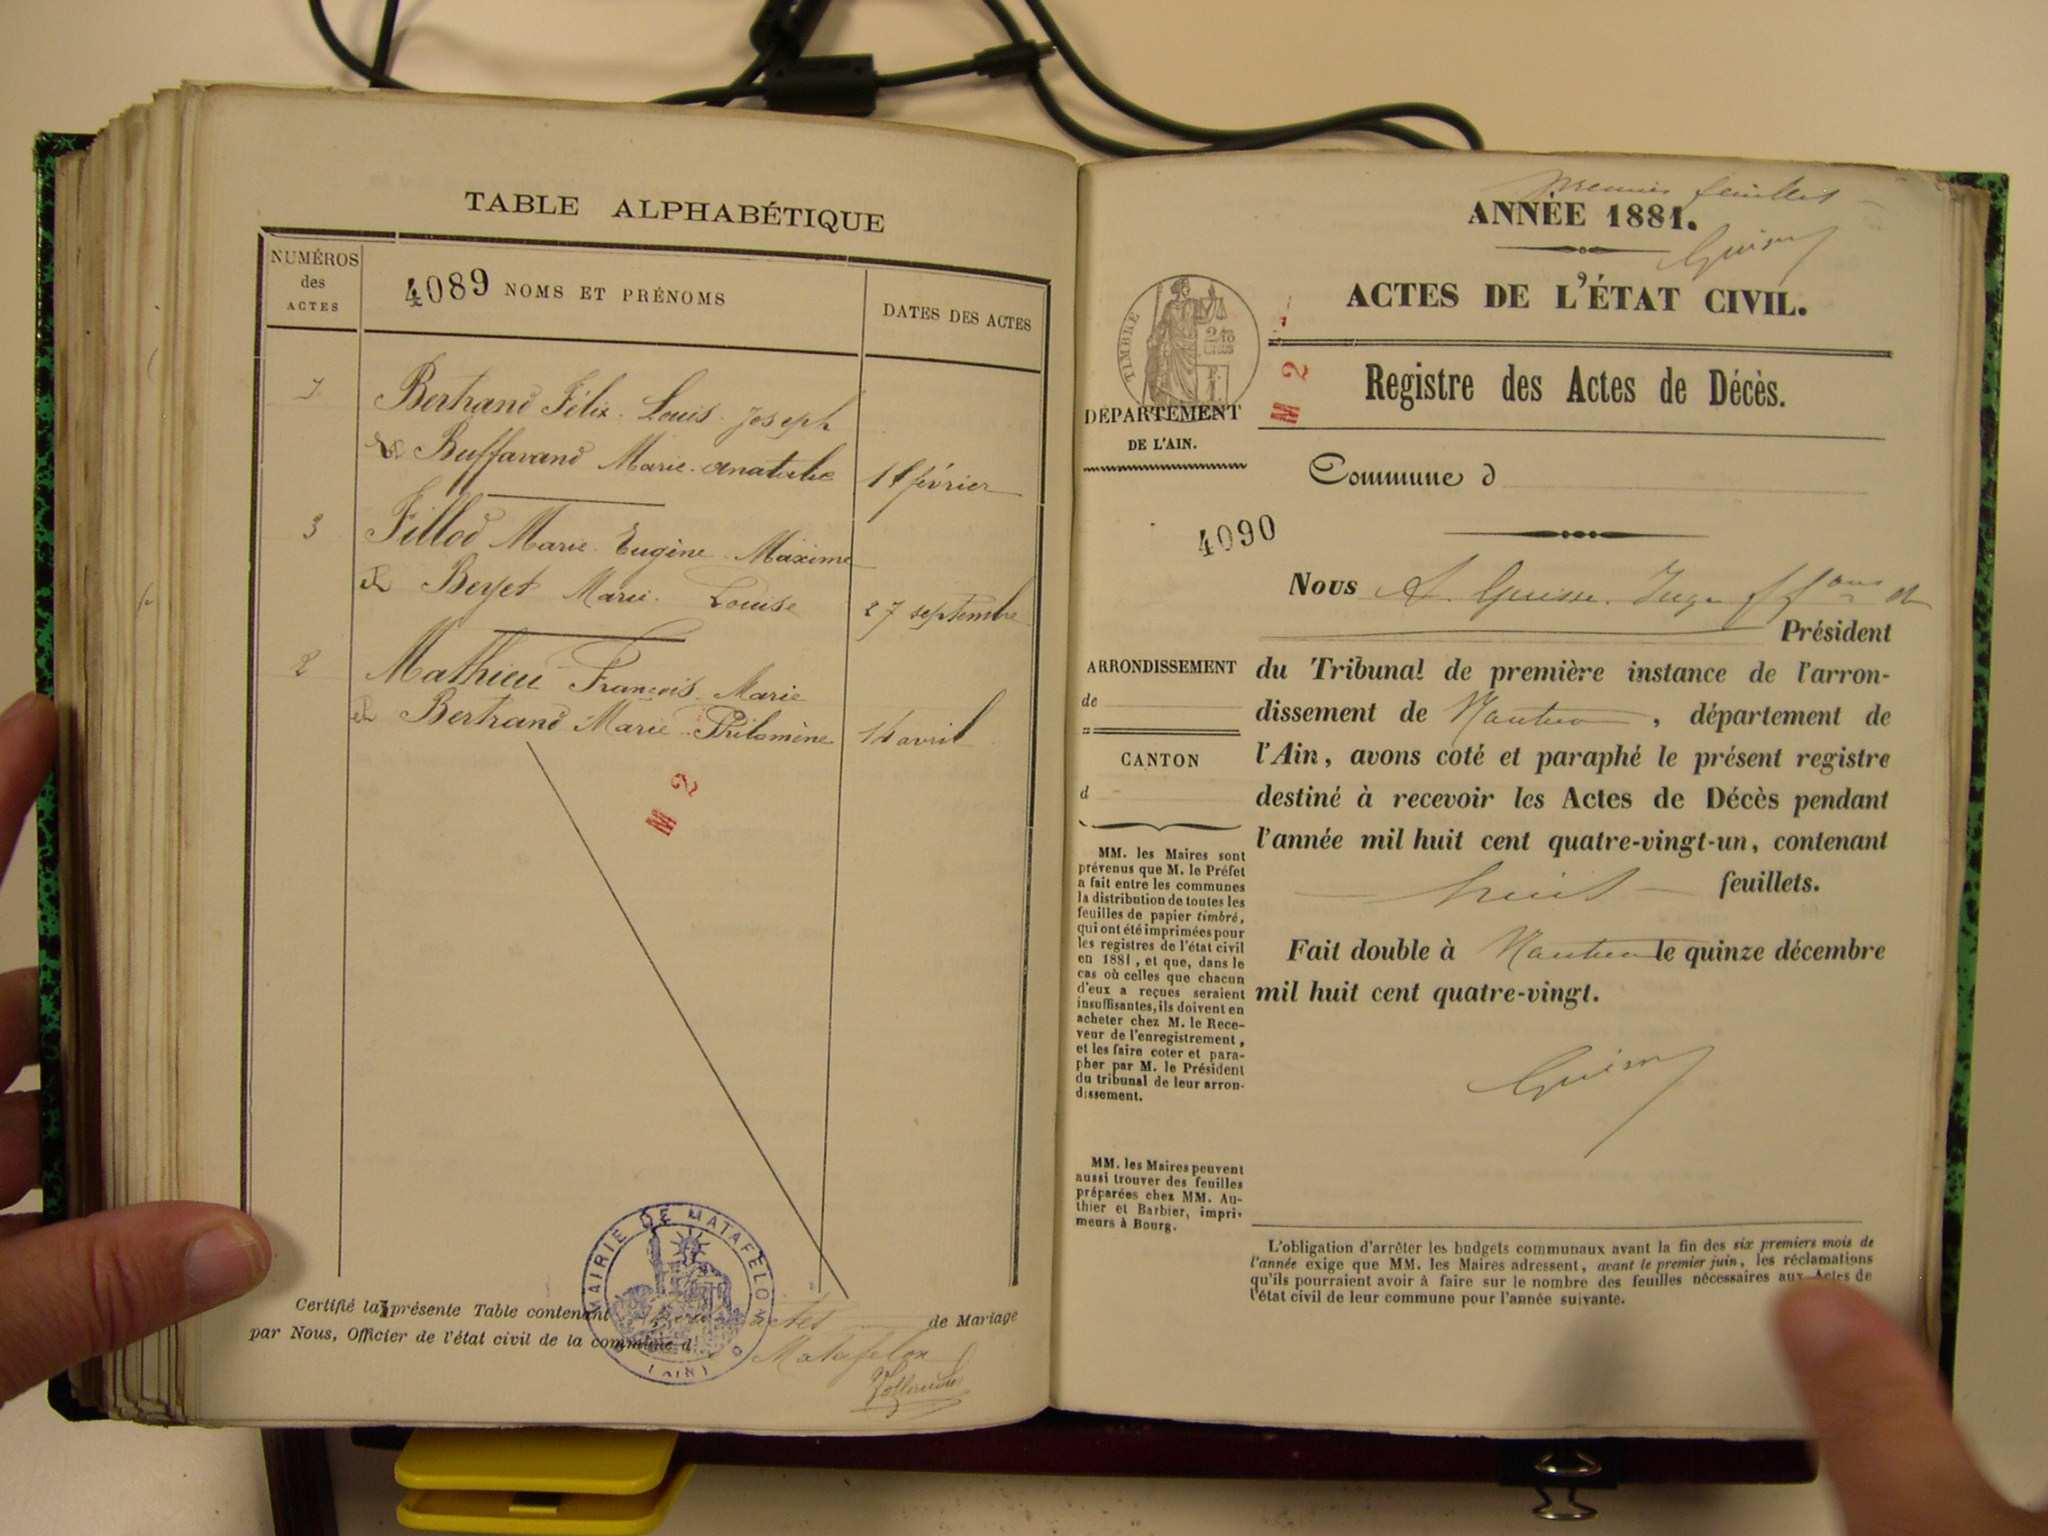 TABLE ALPHABÉTIQUE
NUMÉROS des ACTES
4089 NOMS ET PRÉNOMS
DATES DES ACTES
1 Bertrand Félix Louis Joseph
& Buffavand Marie Anatalie 11 février
3 Fillod Marie Eugène Maxime
et Beyet Marie Louise 27 septembre
2 Mathieu François Marie
et Bertrand Marie Philomène 14 avril
M 2
MAIRIE DE MATAFELON
(AIN)
Certifié la présente Table contenant actes de Mariage
par Nous, Officier de l'état civil de la commune d Matafelon
premier feuillet
ANNÉE 1881.
ACTES DE L'ÉTAT CIVIL.
TIMBRE
M 2
DÉPARTEMENT
DE L'AIN.
Registre des Actes de Décès.
Commune d
4090
Nous A. Juge
Président
du Tribunal de première instance de l'arron-
dissement de Nantua, département de
l'Ain, avons coté et paraphé le présent registre
destiné à recevoir les Actes de Décès pendant
l'année mil huit cent quatre-vingt-un, contenant
huit feuillets.
Fait double à Nantua le quinze décembre
mil huit cent quatre-vingt.
ARRONDISSEMENT
de
CANTON
d
MM. les Maires sont
prévenus que M. le Préfet
a fait entre les communes
la distribution de toutes les
feuilles de papier timbré,
qui ont été imprimées pour
les registres de l'état civil
en 1881, et que, dans le
cas où celles que chacun
d'eux a reçues seraient
insuffisantes, ils doivent en
acheter chez M. le Rece-
veur de l'enregistrement,
et les faire coter et para-
pher par M. le Président
du tribunal de leur arron-
dissement.
MM. les Maires peuvent
aussi trouver des feuilles
préparées chez MM. Au-
thier et Barbier, impri-
meurs à Bourg.
L'obligation d'arrêter les budgets communaux avant la fin des six premiers mois de
l'année exige que MM. les Maires adressent, avant le premier juin, les réclamations
qu'ils pourraient avoir à faire sur le nombre des feuilles nécessaires aux Actes de
l'état civil de leur commune pour l'année suivante.